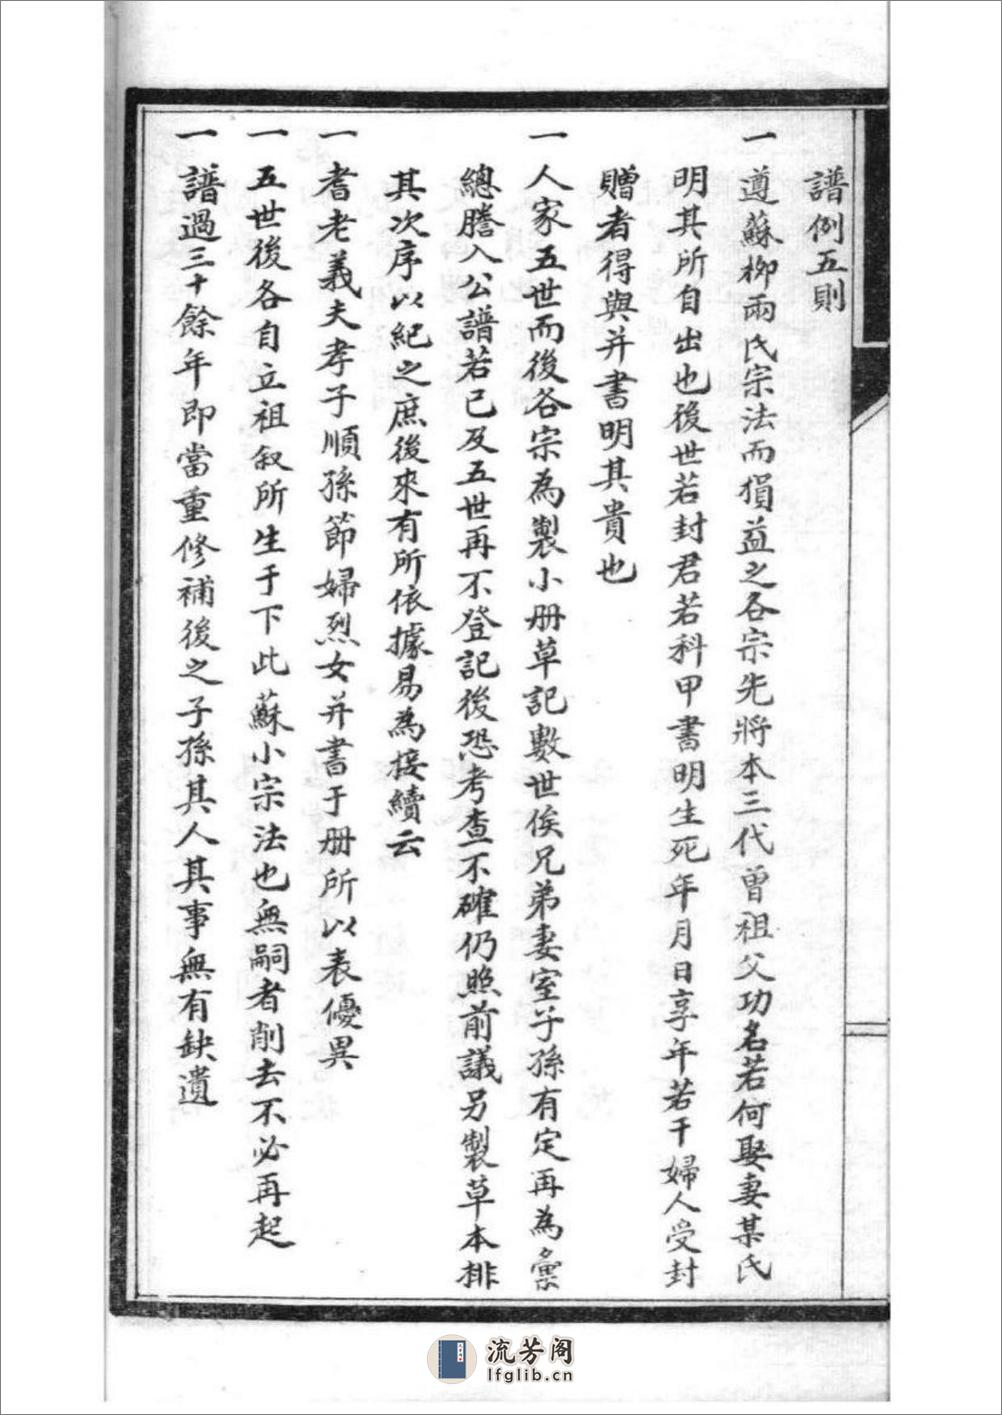 譜例五則
一 遵蘇柳兩氏宗法而損益之各宗先將本三代曾祖父功名若何娶妻某氏
明其所自出也後世若封君若科甲書明生死年月日享年若干婦人受封
贈者得與并書明其貴也
一 人家五世而後各宗為製小册草記數世俟兄弟妻室子孫有定再為彙
總謄入公譜若已及五世再不登記後恐考查不確仍照前議另製草本排
其次序以紀之庶後來有所依據易為接續云
一 耆老義夫孝子順孫節婦烈女并書于册所以表優異
一 五世後各自立祖叙所生于下此蘇小宗法也無嗣者削去不必再起
一 譜過三十餘年即當重修補後之子孫其人其事無有缺遺
流芳阁
lfglib.cn